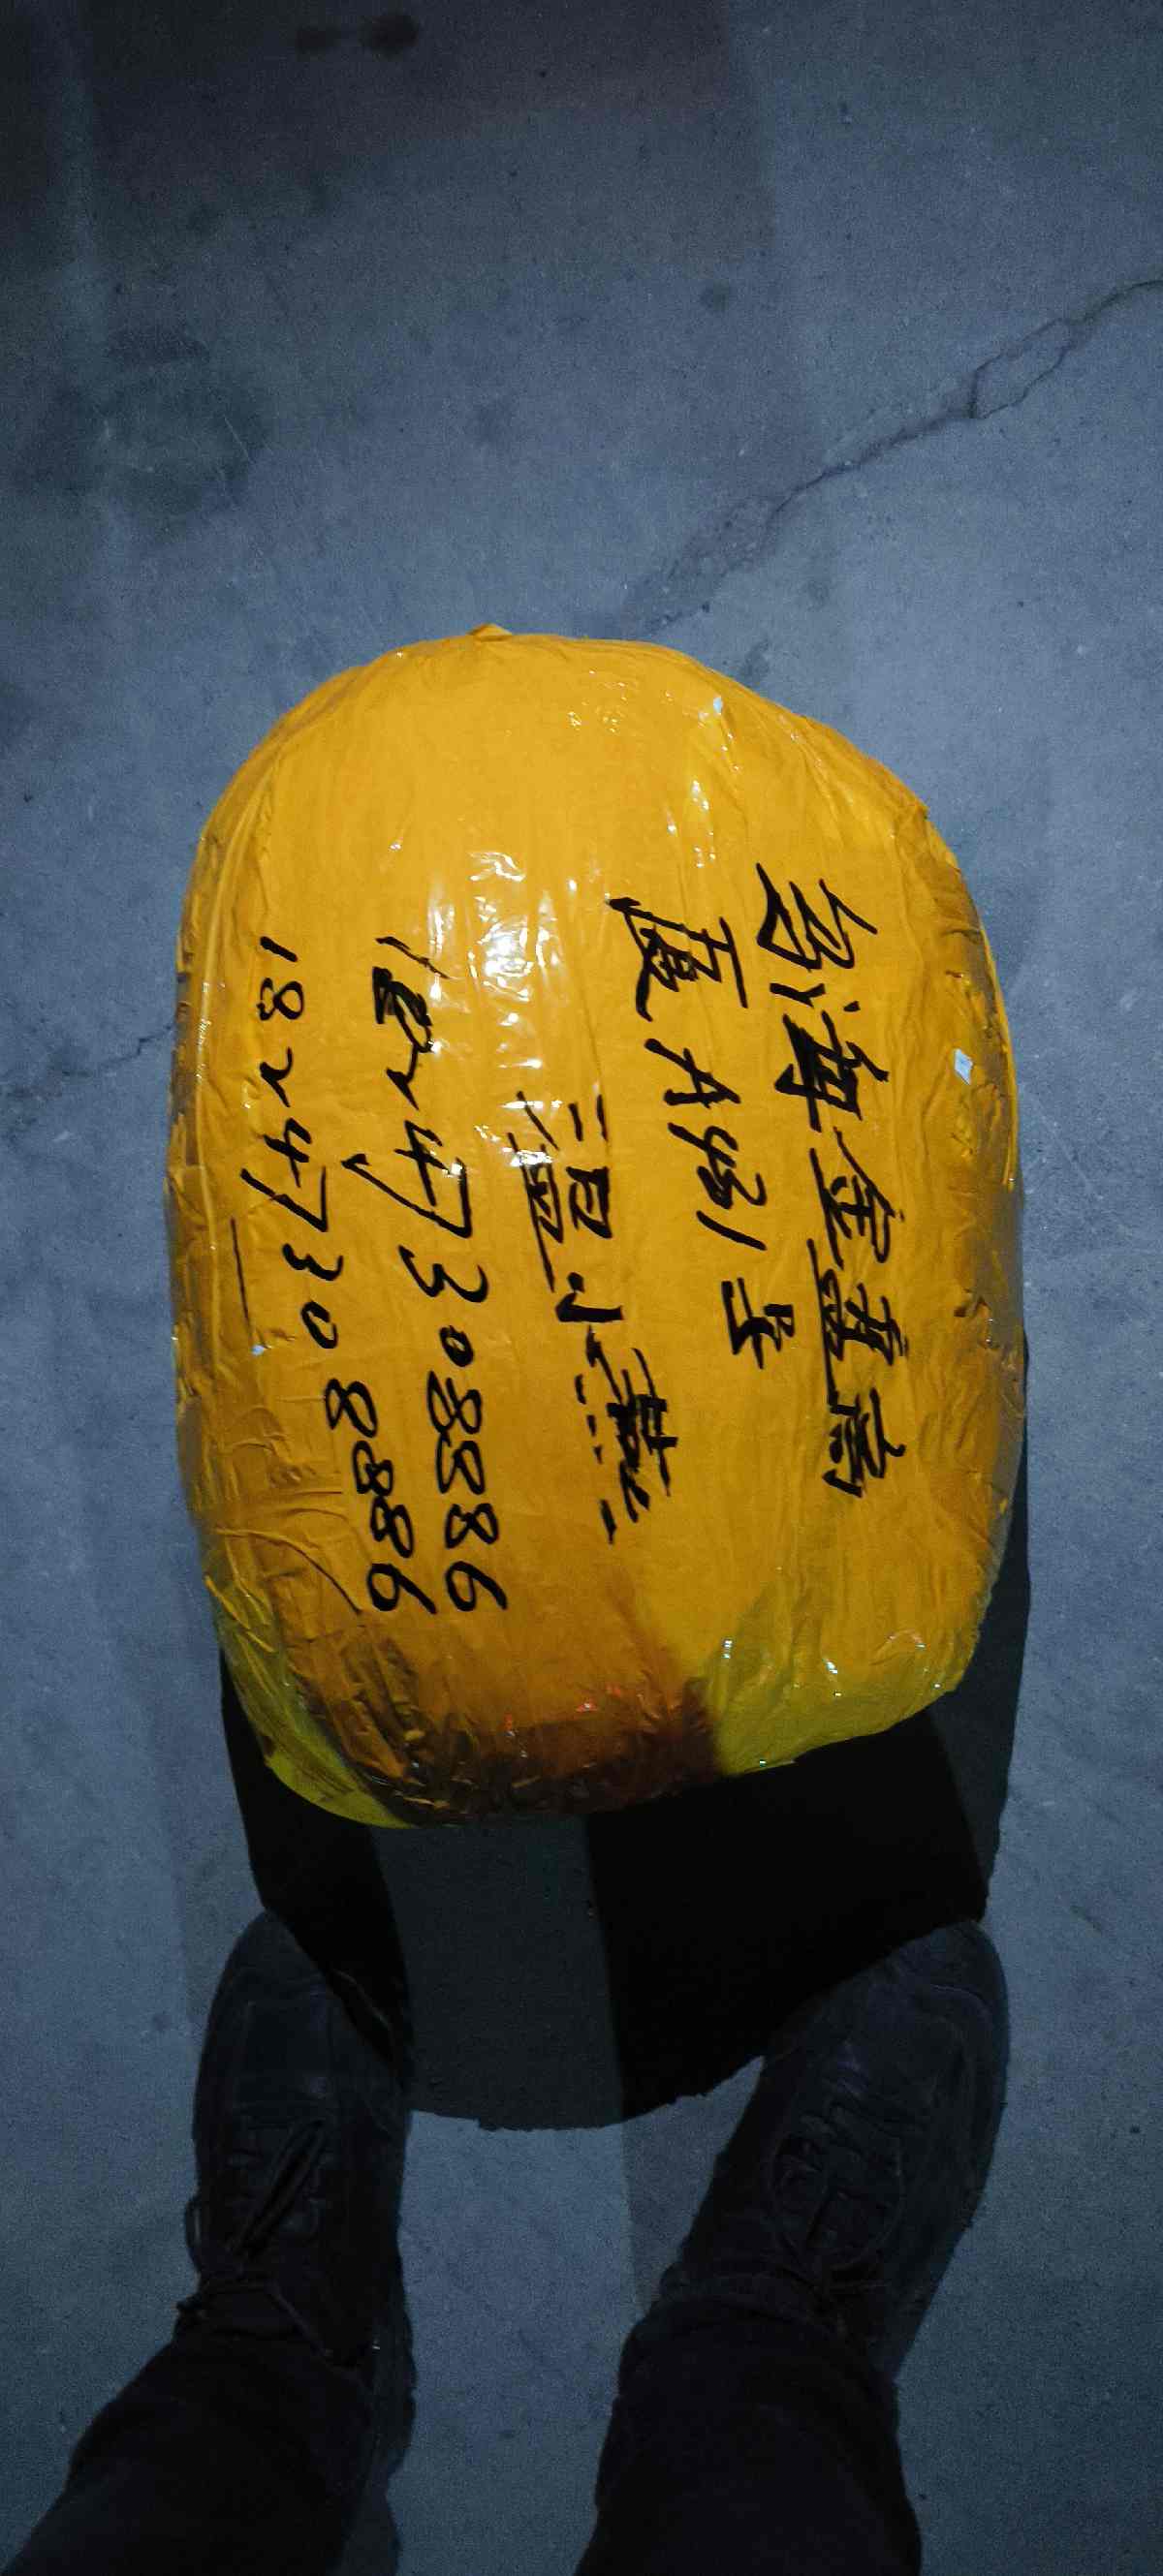 金盔高
厦A931号
温小燕
18247308886
18247308886